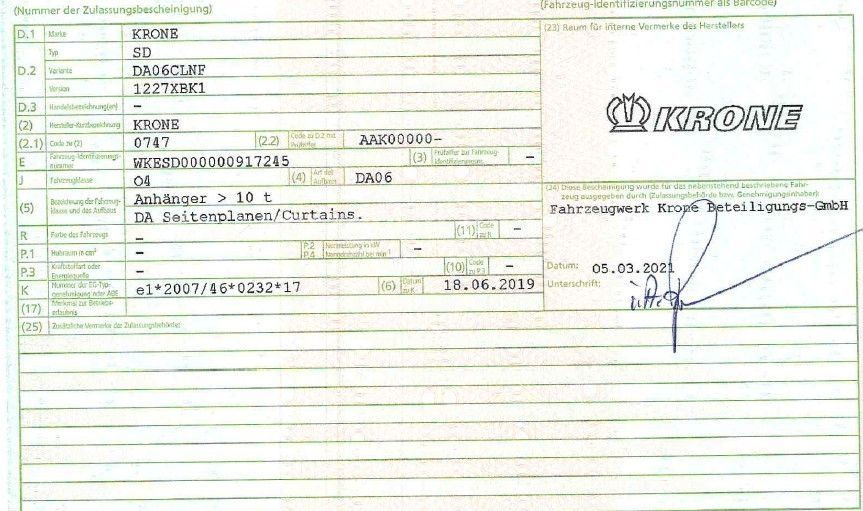 (Nummer der Zulassungsbescheinigung)
(Fahrzeug-Identifizierungsnummer als Barcode)
D.1 Marke KRONE
Typ SD
D.2 Variante DA06CLNF
Version 1227XBK1
D.3 Handelsbezeichnung(en) –
(2) Hersteller-Kurzbezeichnung KRONE
(2.1) Code zu (2) 0747 (2.2) Code zu D.2 mit Prüfziffer AAK00000-
E Fahrzeug-Identifizierungs-nummer WKESD000000917245 (3) Prüfziffer zur Fahrzeug-Identifizierungsnr. –
J Fahrzeugklasse O4 (4) Art des Aufbaus DA06
(5) Bezeichnung der Fahrzeug-klasse und des Aufbaus Anhänger > 10 t
DA Seitenplanen/Curtains.
R Farbe des Fahrzeugs – (11) Code zu R –
P.1 Hubraum in cm³ – P.2 P.4 Nennleistung in kW Nenndrehzahl bei min⁻¹ –
P.3 Kraftstoffart oder Energiequelle – (10) Code zu P.3 –
K Nummer der EG-Typ-genehmigung oder ABE e1*2007/46*0232*17 (6) Datum zu K 18.06.2019
(17) Merkmal zur Betriebs-erlaubnis
(25) Zusätzliche Vermerke der Zulassungsbehörde:
(23) Raum für interne Vermerke des Herstellers
KRONE
(24) Diese Bescheinigung wurde für das nebenstehend beschriebene Fahr-
zeug ausgegeben durch (Zulassungsbehörde bzw. Genehmigungsinhaber):
Fahrzeugwerk Krone Beteiligungs-GmbH
Datum: 05.03.2021
Unterschrift: